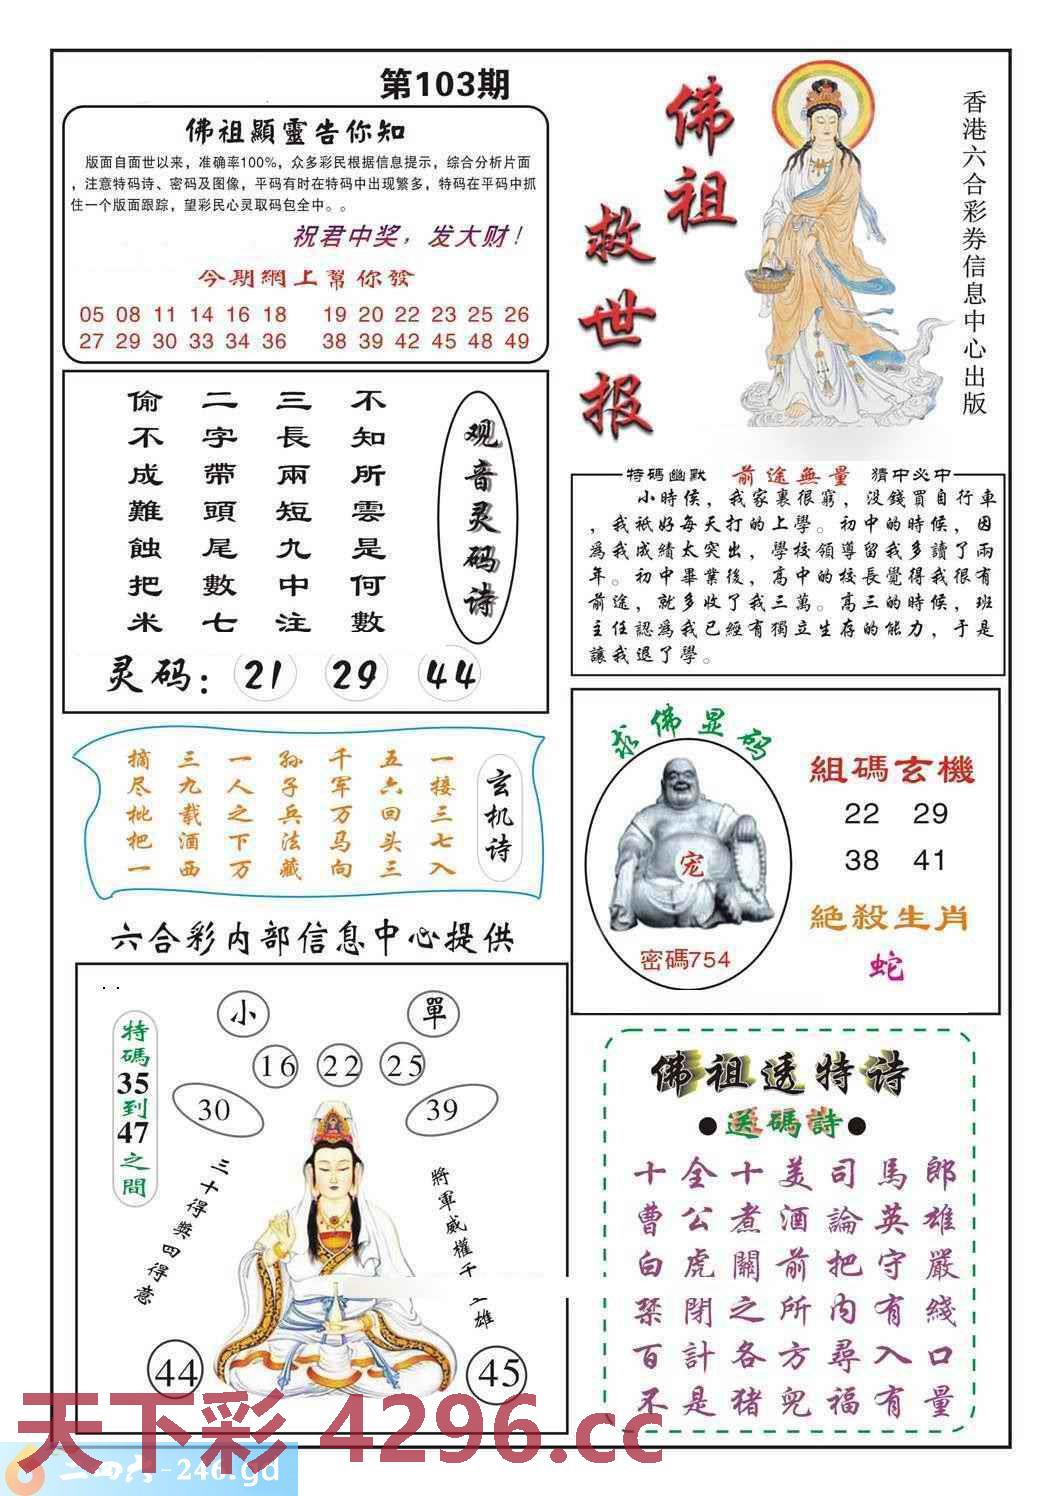 第103期
佛祖顯靈告你知
版面自面世以来，准确率100%，众多彩民根据信息提示，综合分析片面
，注意特码诗、密码及图像，平码有时在特码中出现繁多，特码在平码中抓
住一个版面跟踪，望彩民心灵取码包全中。。
祝君中奖，发大财！
今期網上幫你發
05 08 11 14 16 18 19 20 22 23 25 26
27 29 30 33 34 36 38 39 42 45 48 49
佛祖
救世报
香港六合彩券信息中心出版
观音灵码诗
不知所雲是何數
三長兩短九中注
二字帶頭尾數七
偷不成難蝕把米
灵码：21 29 44
特碼幽默 前途無量 猜中必中
小時侯，我家裏很窮，没錢買自行車
，我祇好每天打的上學。初中的時候，因
爲我成績太突出，學校領導留我多讀了兩
年。初中畢業後，高中的校長覺得我很有
前途，就多收了我三萬。高三的時候，班
主任認爲我已經有獨立生存的能力，于是
讓我退了學。
玄机诗
一接三七入
五六回头三
千军万马向
孙子兵法藏
一人之下万
三九载酒西
摘尽枇把一
求佛显码
宠
密碼754
組碼玄機
22 29
38 41
絕殺生肖
蛇
六合彩内部信息中心提供
小 單
16 22 25
30 39
特碼35到47之間
三十得獎四得意
將軍威權千
雄
44 45
佛祖透特诗
●送碼詩●
十全十美司馬郎
曹公煮酒論英雄
白虎關前把守嚴
禁閉之所内有綫
百計各方尋入口
不是猪兜福有量
天下彩 4296.cc
二四六-246.gd